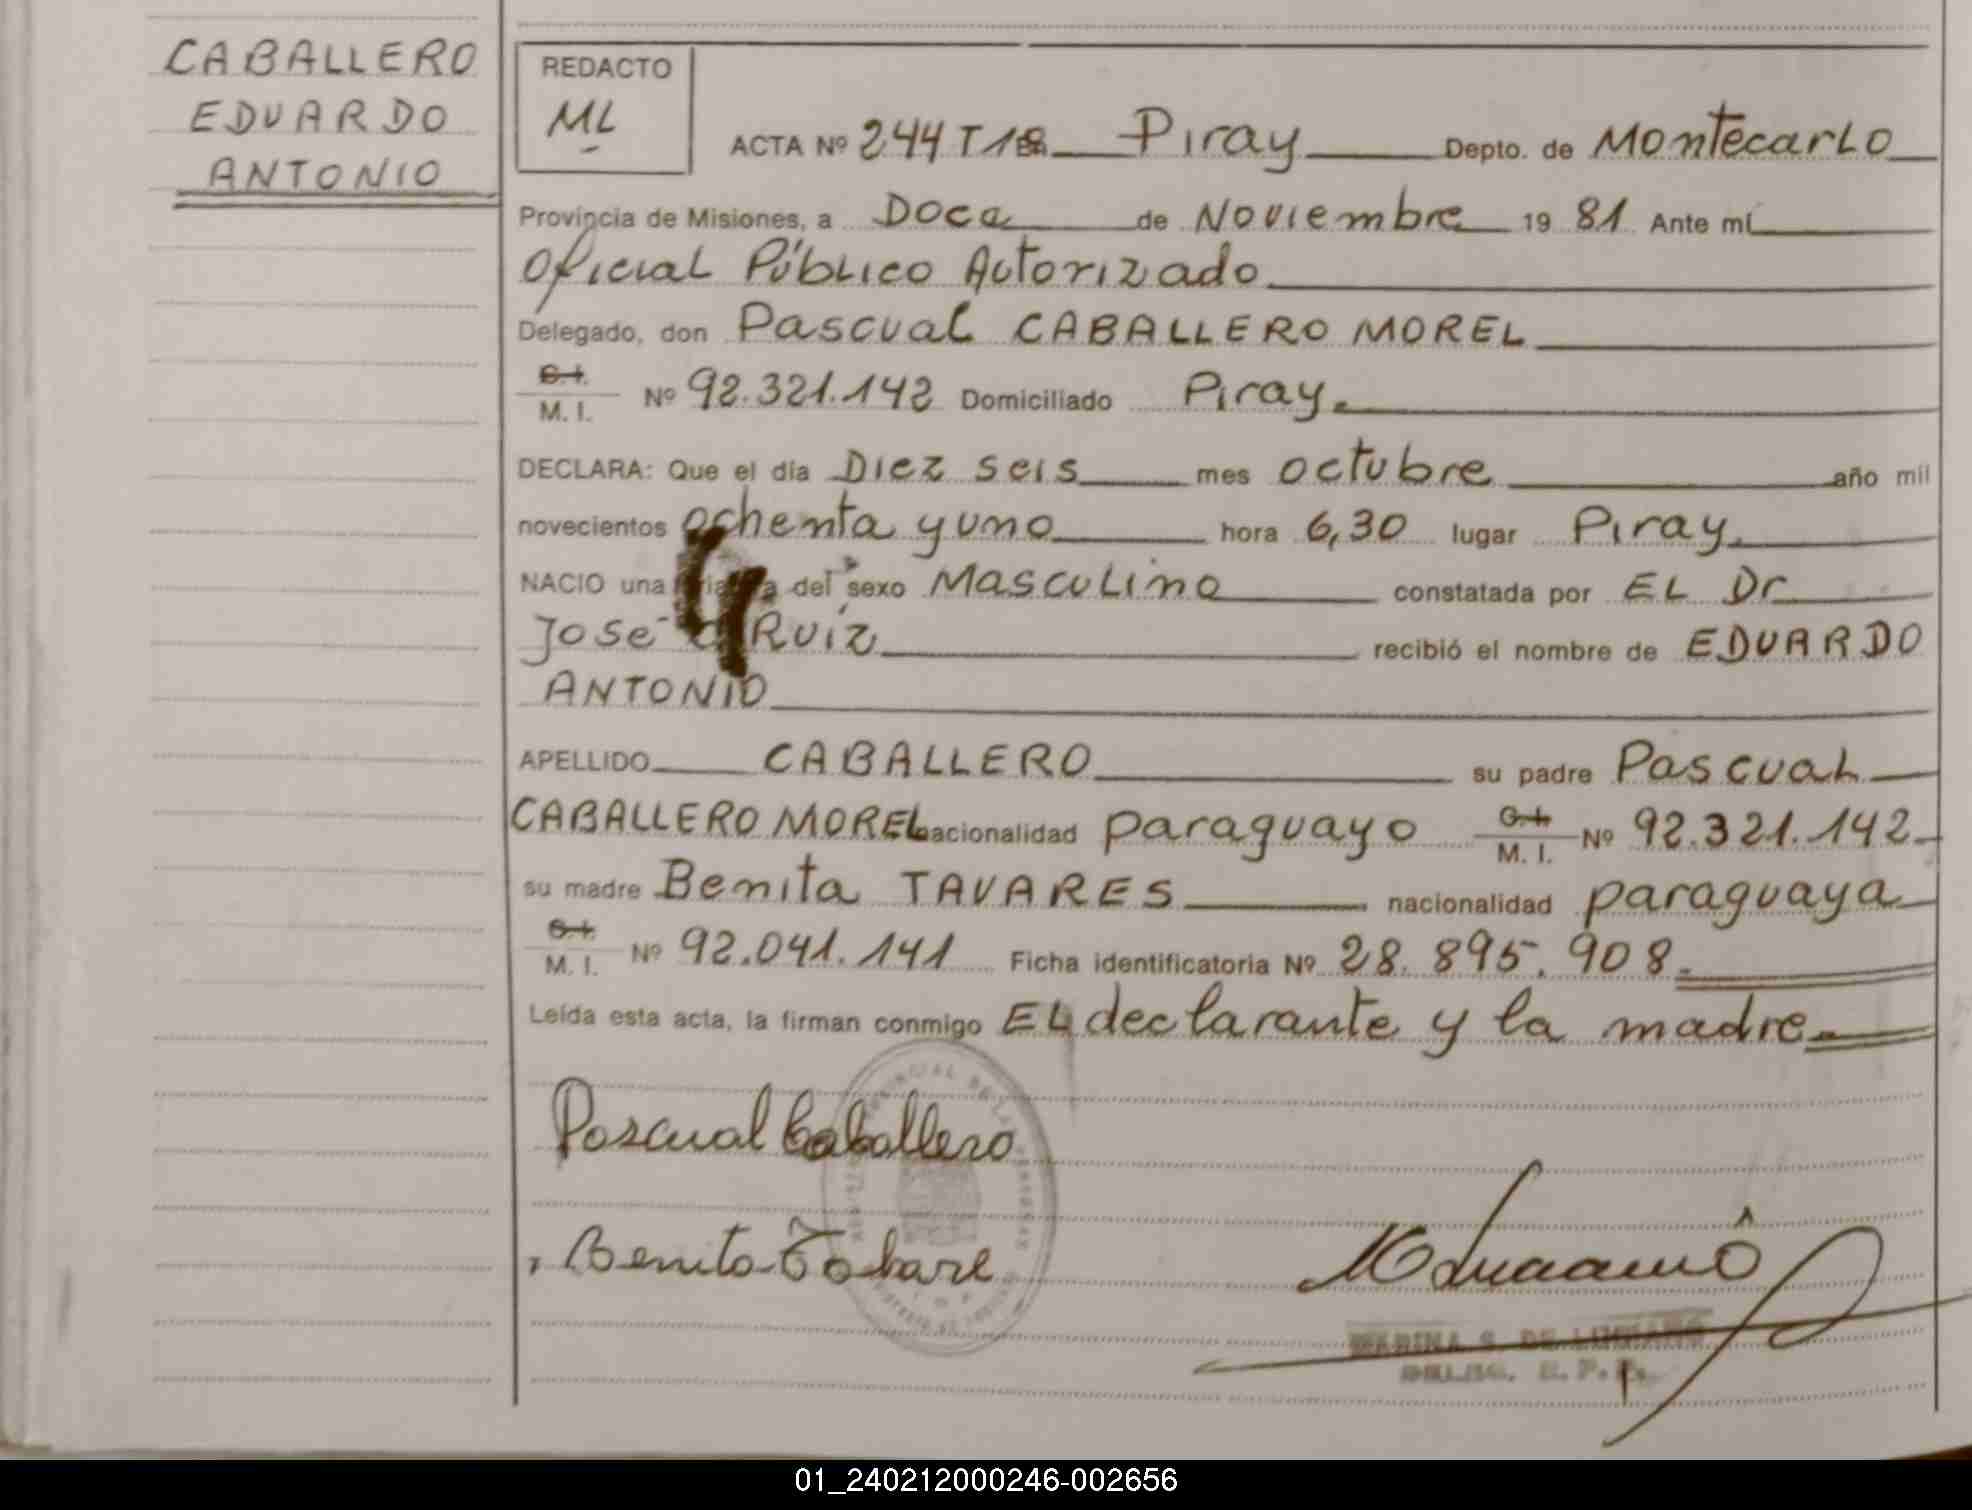 CABALLERO
EDUARDO
ANTONIO
REDACTO
ML
ACTA Nº 244 T1 Piray Depto. de Montecarlo
Provincia de Misiones, a Doce de Noviembre 19 81 Ante mí
Oficial Público Autorizado
Delegado, don Pascual CABALLERO MOREL
C.I.
M. I. Nº 92.321.142 Domiciliado Piray.
DECLARA: Que el día Diez seis mes octubre año mil
novecientos ochenta y uno hora 6,30 lugar Piray.
NACIO una criatura del sexo Masculino constatada por EL Dr
José Ruíz recibió el nombre de EDUARDO
ANTONIO
APELLIDO CABALLERO su padre Pascual
CABALLERO MOREL nacionalidad paraguayo C.I. M. I. Nº 92.321.142
su madre Benita TAVARES nacionalidad paraguaya
C.I.
M. I. Nº 92.041.141 Ficha identificatoria Nº 28.895.908.
Leída esta acta, la firman conmigo EL declarante y la madre.
Pascual Caballero
Benita Tabare
DE
01_240212000246-002656